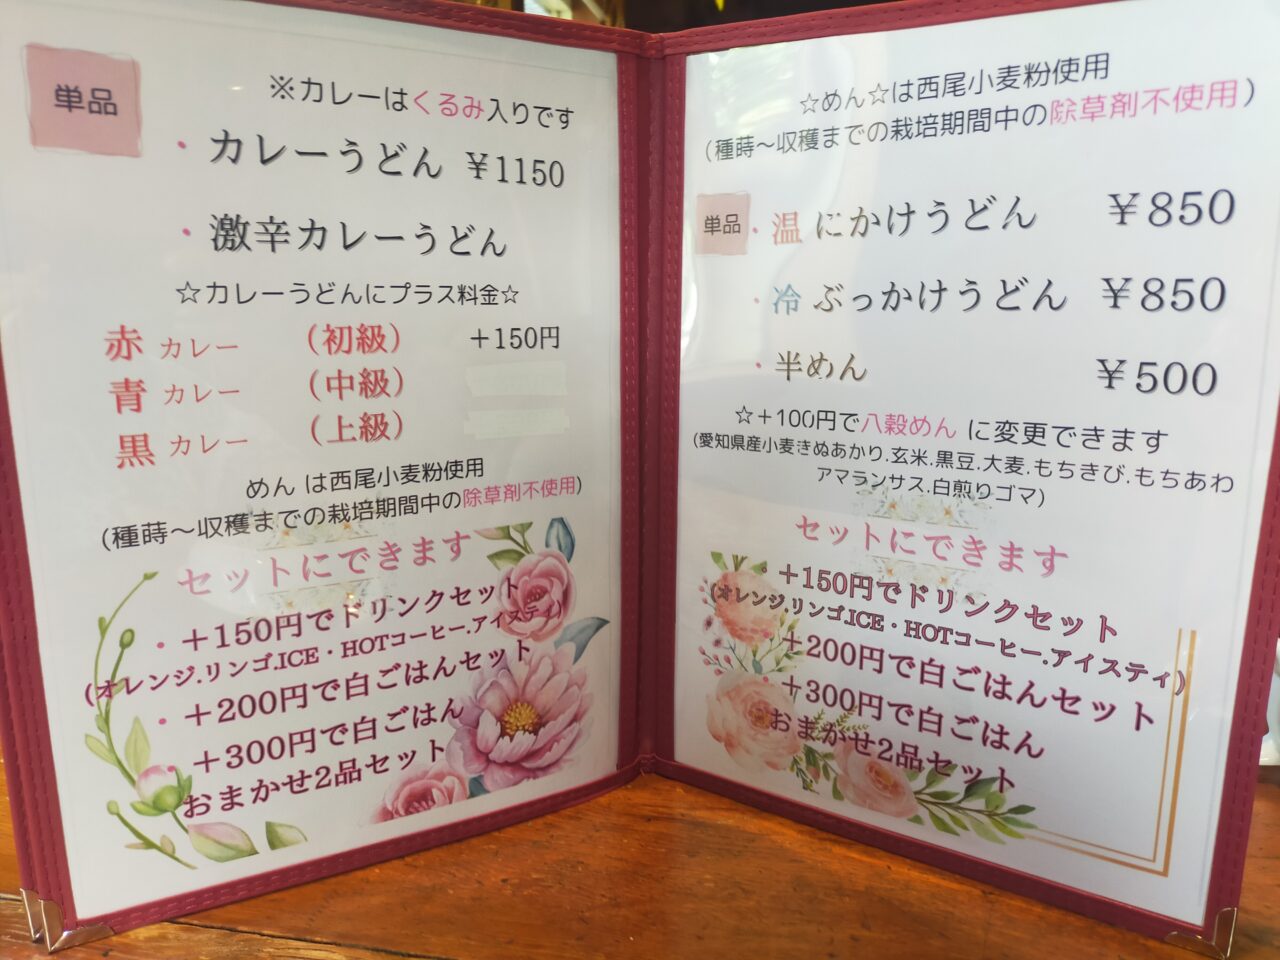 単品
※カレーはくるみ入りです
・カレーうどん ￥1150
・激辛カレーうどん
☆カレーうどんにプラス料金☆
赤 カレー （初級） ＋150円
青 カレー （中級）
黒 カレー （上級）
めん は西尾小麦粉使用
（種蒔～収穫までの栽培期間中の除草剤不使用）
セットにできます
・＋150円でドリンクセット
（オレンジ.リンゴ.ICE・HOTコーヒー.アイスティ）
・＋200円で白ごはんセット
＋300円で白ごはん
おまかせ2品セット
☆めん☆は西尾小麦粉使用
（種蒔～収穫までの栽培期間中の除草剤不使用）
単品
・温 にかけうどん ￥850
・冷 ぶっかけうどん ￥850
・半めん ￥500
☆＋100円で八穀めん に変更できます
（愛知県産小麦きぬあかり.玄米.黒豆.大麦.もちきび.もちあわ
アマランサス.白煎りゴマ）
セットにできます
・＋150円でドリンクセット
（オレンジ.リンゴ.ICE・HOTコーヒー.アイスティ）
＋200円で白ごはんセット
＋300円で白ごはん
おまかせ2品セット